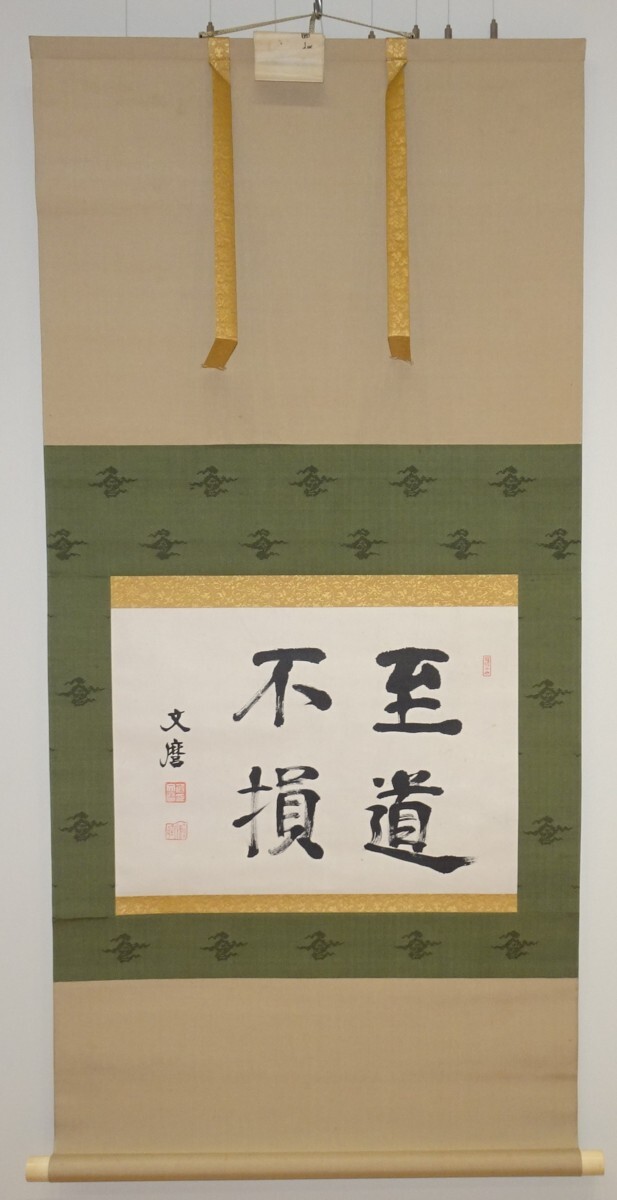 至道
不損
文麿